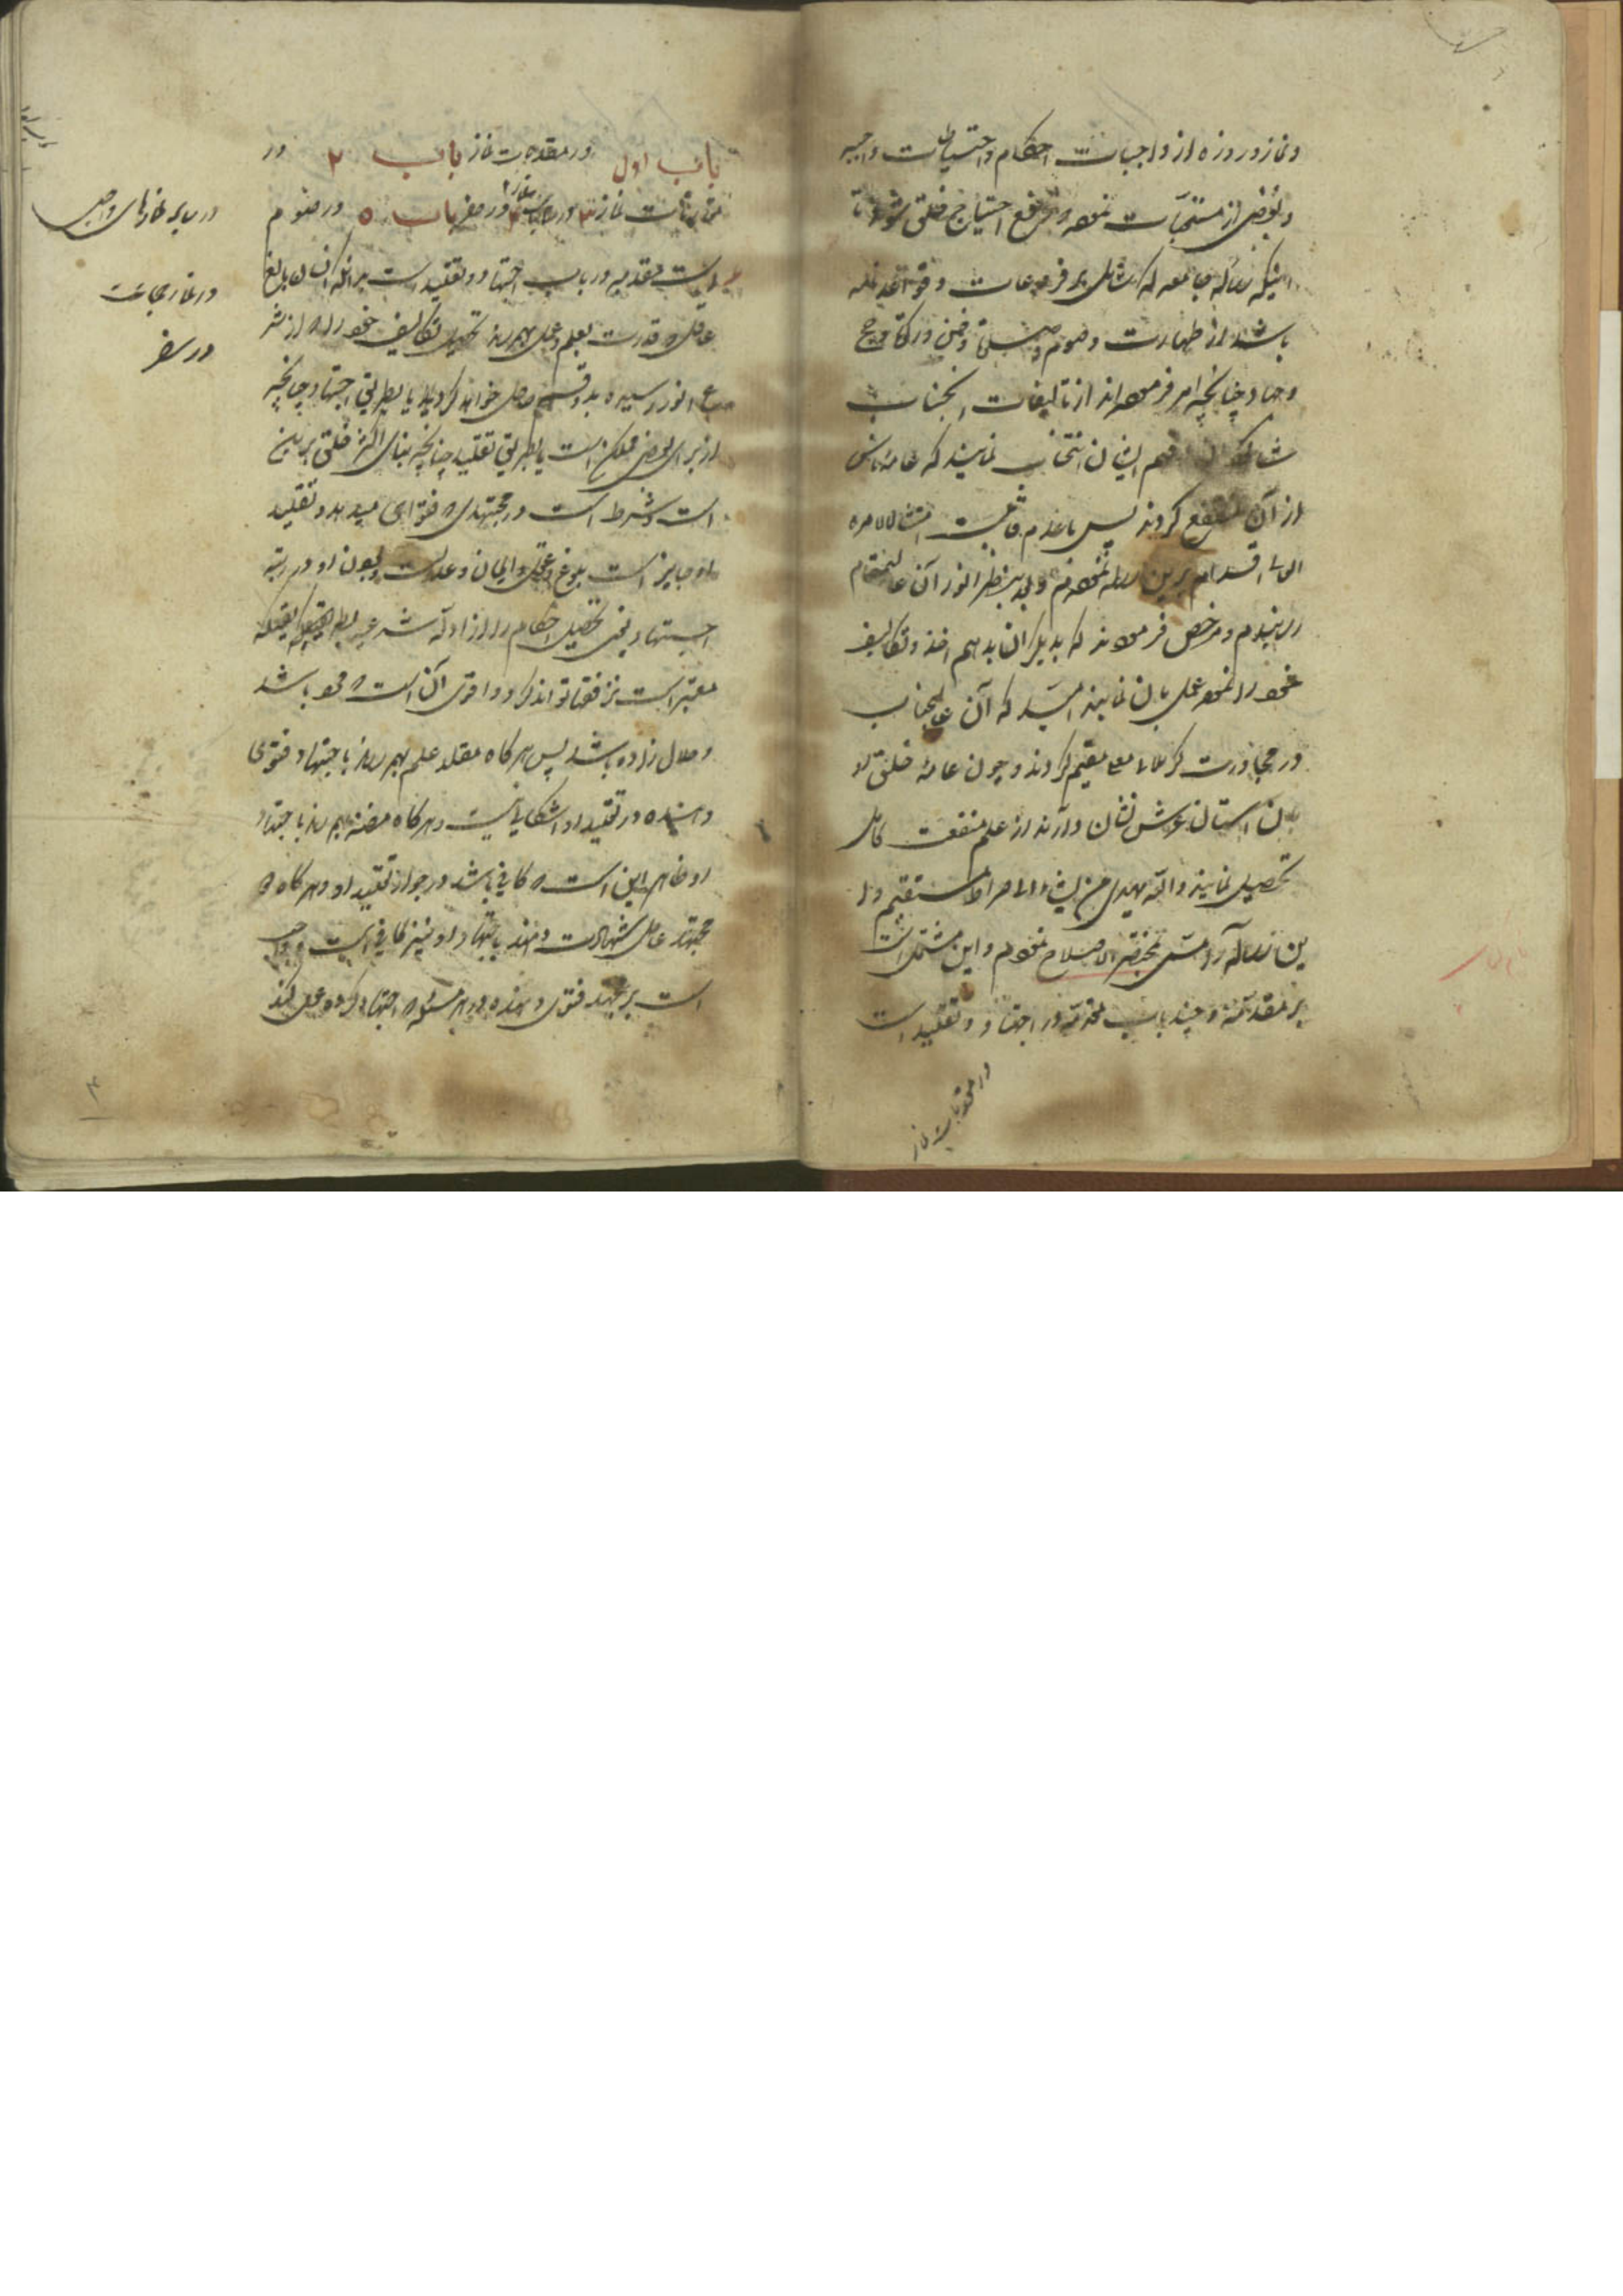 ونماز و روزه از واجبات احکام و احتیاطات واجبه
و بعضی از مستحبات نموده رفع احتیاج خلق شود تا
اینکه رساله جامعه که شامل بر فروعات و قواعد
باشد از طهارت و صوم و صلوة و خمس و زکوة و حج
و جهاد چنانچه امر فرموده‌اند از تالیفات انجناب
فهم ایشان انتخاب نمایند که عامه ناس
از آن منتفع گردند پس با عدم قابلیت امتثالا لامره
العالی اقدام برین رساله نمودم و بعد بنظر انور آن عالیمقام
رسانیدم و مرخص فرمودند که بدیگران بدهم اخذ و تکالیف
خود را نموده عمل بان نمایند امید که آن عالیجناب
در مجاورت کربلای معلی مقیم گردند و چون عامه خلق
بان استان عرش نشان وارند از علم منفعت کامل
تحصیل نمایند والله یهدی من یشاء الی صراط مستقیم و ا
ین رساله را مسمی بمختصر الاصلاح نمودم و این مشتمل است
بر مقدمه و چند باب مقدمه در اجتهاد و تقلید است
در مقدمات نماز
باب اول در مقدمات نماز باب ۲ در
مقارنات نماز ۳ در باب ۵ در صوم
است مقدمه در باب اجتهاد و تقلید است بدانکه انسان بالغ
عاقل که قدرت بعلم و عمل بهم رساند تحصیل تکالیف خود را که از شر
ع انور رسیده بدو قسم حاصل خواهد کرد یا بطریق اجتهاد چنانچه
از برای بعضی ممکن است یا بطریق تقلید چنانچه بنای اکثر خلق برین
است و شرط است در مجتهدی که فتوای میدهد و تقلید
او جایز است بلوغ و عقل و ایمان و عدالت و بودن او در رتبه
اجتهاد یعنی تحصیل احکام را از ادله شرعیه بطریقیکه
معتبر است نزد فقها تواند کرد و اقوی آن است که مرد باشد
و حلال زاده باشد پس هرگاه مقلد علم بهم رساند باجتهاد فتوی
دهنده در تقلید او اشکالی نیست و هرگاه مظنه بهم رساند باجتهاد
او ظاهر این است که کافی باشد در جواز تقلید او و هرگاه دو
مجتهد عادل شهادت دهند باجتهاد او نیز کافی است و واجب
است بر مجتهد فتوی دهنده در هر مسئله که اجتهاد کرده عمل کند
در سایر نمازهای واجب
در نماز جماعت
در سفر
۳